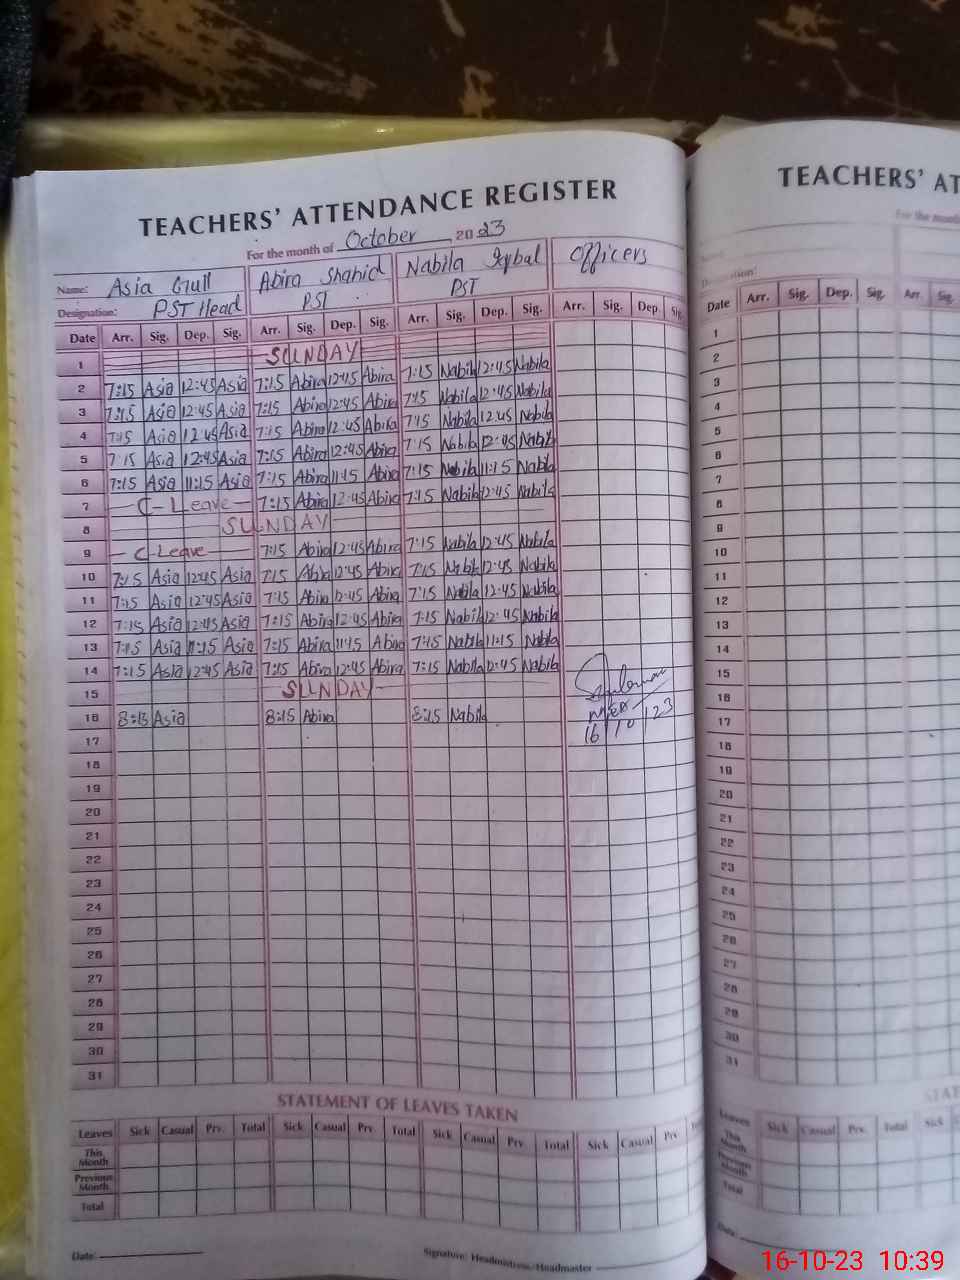 TEACHERS' ATTENDANCE REGISTER
For the month of October 2023
Name: Asia Gull Abira Shahid Nabila Iqbal Officers
Designation: PST Head PST PST
Date Arr. Sig. Dep. Sig. Arr. Sig. Dep. Sig. Arr. Sig. Dep. Sig. Arr. Sig. Dep. Sig.
1 SUNDAY
2 7:15 Asia 12:45 Asia 7:15 Abira 12:45 Abira 7:15 Nabila 12:45 Nabila
3 7:15 Asia 12:45 Asia 7:15 Abira 12:45 Abira 7:15 Nabila 12:45 Nabila
4 7:15 Asia 12:45 Asia 7:15 Abira 12:45 Abira 7:15 Nabila 12:45 Nabila
5 7:15 Asia 12:45 Asia 7:15 Abira 12:45 Abira 7:15 Nabila 12:45 Nabila
6 7:15 Asia 11:15 Asia 7:15 Abira 11:15 Abira 7:15 Nabila 11:15 Nabila
7 C-Leave 7:15 Abira 12:45 Abira 7:15 Nabila 12:45 Nabila
8 SUNDAY
9 C-Leave 7:15 Abira 12:45 Abira 7:15 Nabila 12:45 Nabila
10 7:15 Asia 12:45 Asia 7:15 Abira 12:45 Abira 7:15 Nabila 12:45 Nabila
11 7:15 Asia 12:45 Asia 7:15 Abira 12:45 Abira 7:15 Nabila 12:45 Nabila
12 7:15 Asia 12:45 Asia 7:15 Abira 12:45 Abira 7:15 Nabila 12:45 Nabila
13 7:15 Asia 11:15 Asia 7:15 Abira 11:45 Abira 7:15 Nabila 11:15 Nabila
14 7:15 Asia 12:45 Asia 7:15 Abira 12:45 Abira 7:15 Nabila 12:45 Nabila
15 SUNDAY
16 8:15 Asia 8:15 Abira 8:15 Nabila
16/10/23
17
18
19
20
21
22
23
24
25
26
27
28
29
30
31
STATEMENT OF LEAVES TAKEN
Leaves Sick Casual Prv. Total Sick Casual Prv. Total Sick Casual Prv. Total Sick Casual Prv.
This Month
Previous Month
Total
Date: Signature: Headmistress/Headmaster
TEACHERS' AT
For the month
Name:
Designation:
Date Arr. Sig. Dep. Sig. Arr. Sig.
1
2
3
4
5
6
7
8
9
10
11
12
13
14
15
16
17
18
19
20
21
22
23
24
25
26
27
28
29
30
31
STAT
Leaves Sick Casual Prv. Total Sick
This Month
Previous Month
Total
Date:
16-10-23 10:39